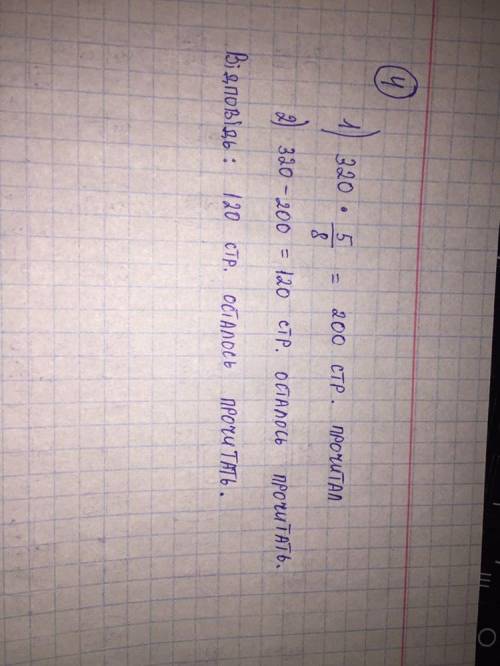 4
1) 320 • 5/8 = 200 стр. прочитал
2) 320 - 200 = 120 стр. осталось прочитать.
Відповідь: 120 стр. осталось прочитать.